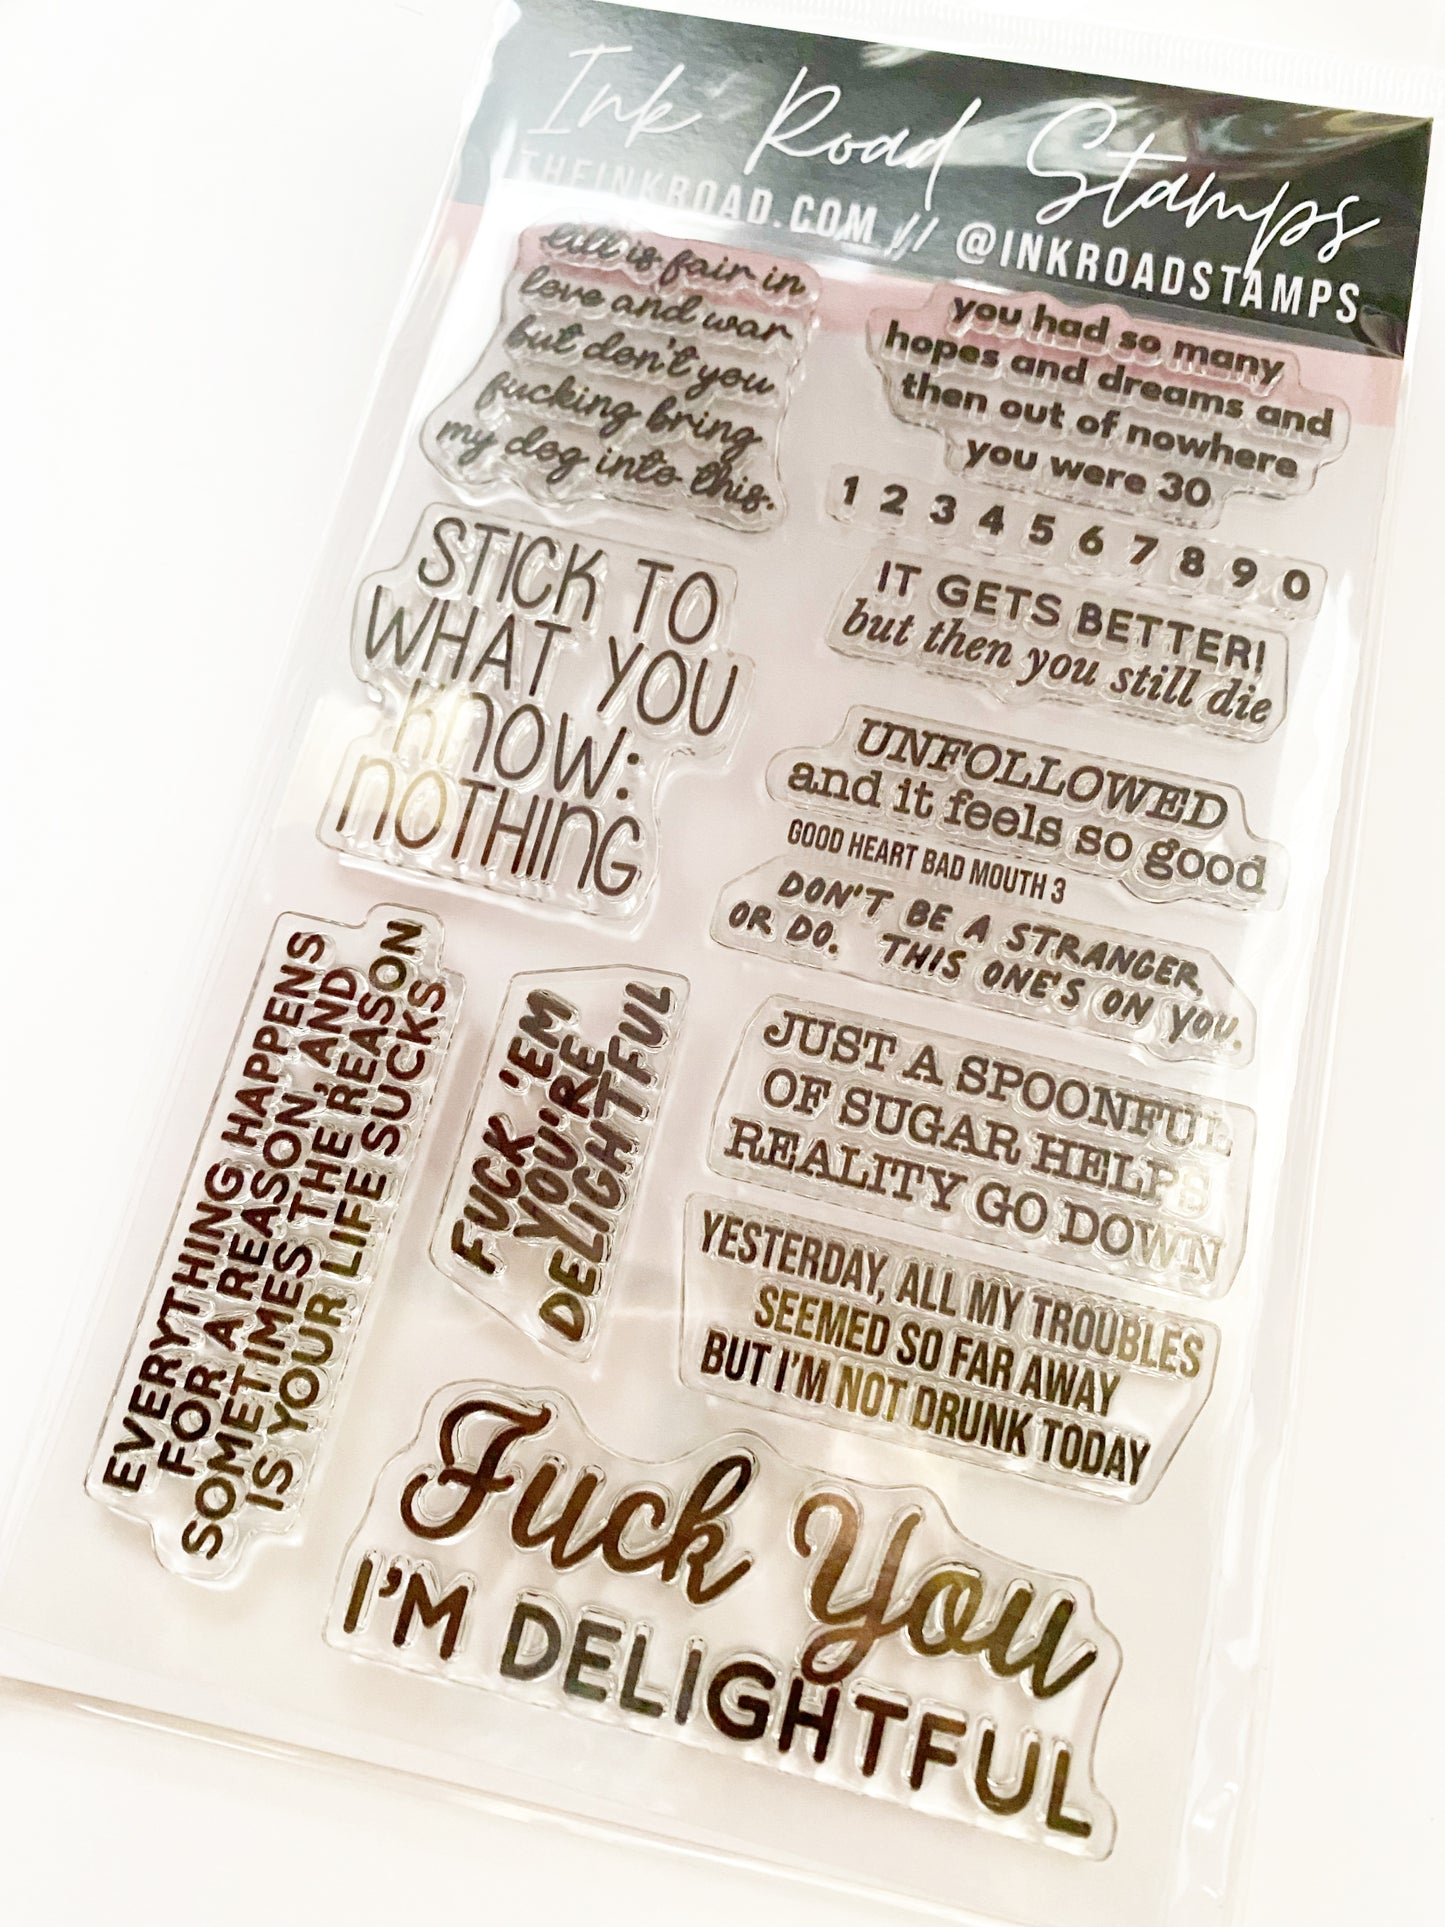 Ink Road Stamps
THEINKROAD.COM // @INKROADSTAMPS
all is fair in
love and war
but don't you
fucking bring
my dog into this.
you had so many
hopes and dreams and
then out of nowhere
you were 30
1 2 3 4 5 6 7 8 9 0
STICK TO
WHAT YOU
KNOW:
NOTHING
IT GETS BETTER!
but then you still die
UNFOLLOWED
and it feels so good
GOOD HEART BAD MOUTH 3
DON'T BE A STRANGER,
OR DO. THIS ONE'S ON YOU.
EVERYTHING HAPPENS
FOR A REASON, AND
SOMETIMES THE REASON
IS YOUR LIFE SUCKS
FUCK 'EM
YOU'RE
DELIGHTFUL
JUST A SPOONFUL
OF SUGAR HELPS
REALITY GO DOWN
YESTERDAY, ALL MY TROUBLES
SEEMED SO FAR AWAY
BUT I'M NOT DRUNK TODAY
Fuck You
I'M DELIGHTFUL